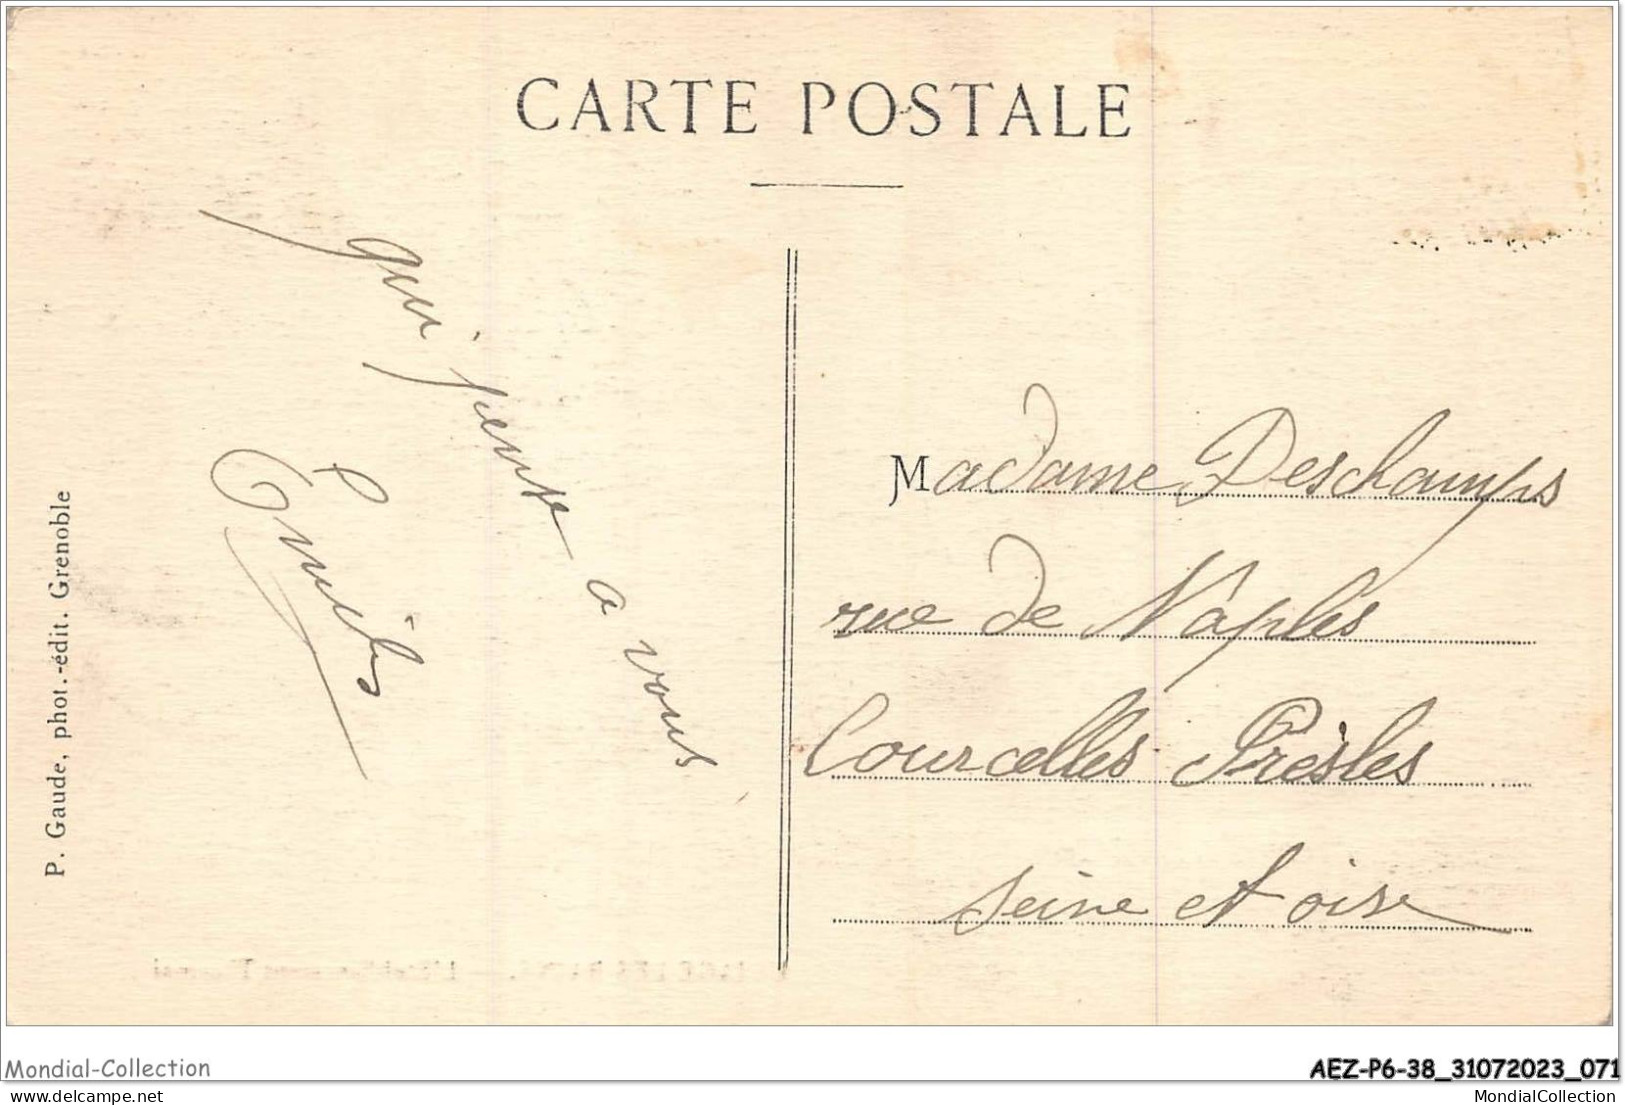 CARTE POSTALE
qui pense a vous
P. Gaude, phot.-édit. Grenoble
Madame Deschamps
rue de Naples
Courcelles Presles
Seine et oise
Mondial-Collection
AEZ-P6-38_31072023_071
MondialCollection.com
MondialCollection.com